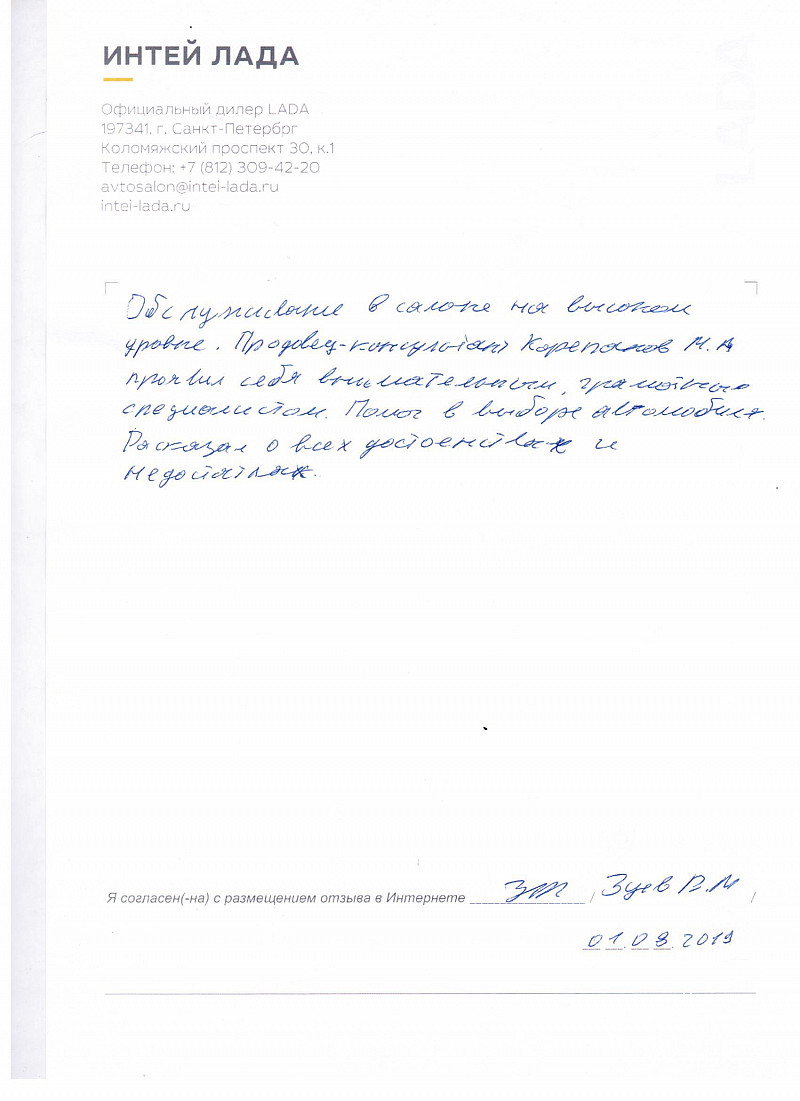 ИНТЕЙ ЛАДА
Официальный дилер LADA
197341, г. Санкт-Петербрг
Коломяжский проспект 30, к.1
Телефон: +7 (812) 309-42-20
avtosalon@intei-lada.ru
intei-lada.ru
Обслуживание в салоне на высоком
уровне. Продовец-консультант Корепанов М.А
проявил себя внимательным, грамотным
специалистом. Помог в выборе автомобиля.
Расказал о всех достоенствах и
недостатках.
Я согласен(-на) с размещением отзыва в Интернете / Зуев В.М /
01.08.2019